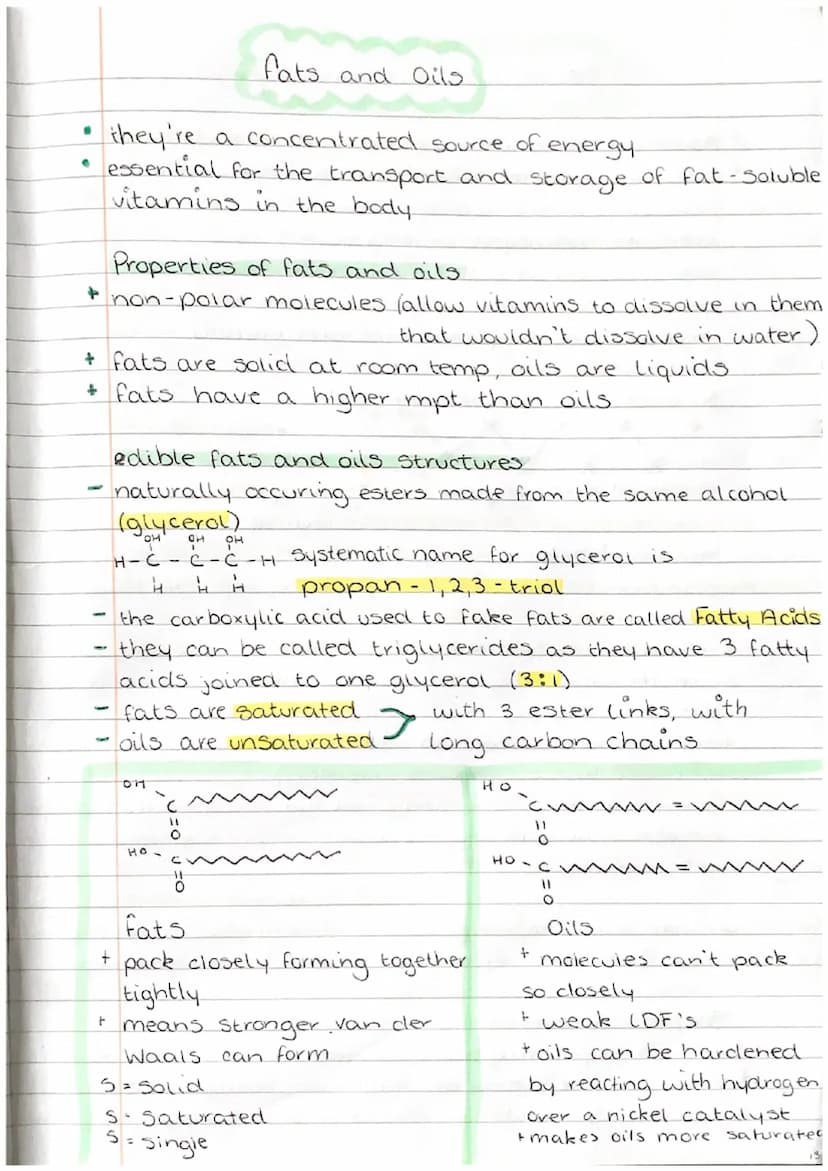 Fats and Oils
• they're a concentrated source of energy
• essential for the transport and storage of fat-soluble
vitamins in the body
Properties of fats and oils
+ non-polar molecules (allow vitamins to dissolve in them
that wouldn't dissolve in water)
+ fats are solid at room temp, oils are liquids
+ fats have a higher mpt than oils
edible fats and oils structures
- naturally occuring esters made from the same alcohol
(glycerol)
OH OH OH
H-C-C-C-H systematic name for glycerol is
H H H propan-1,2,3-triol
- the carboxylic acid used to fake fats are called Fatty Acids
- they can be called triglycerides as they have 3 fatty
acids joined to one glycerol (3:1)
- fats are saturated with 3 ester links, with
- oils are unsaturated long carbon chains
OH
C
O
HO-C
O
fats
+ pack closely forming together
tightly
+ means stronger van der
Waals can form
S = Solid
S - Saturated
S = Single
HO
C =
O
HO-C =
O
Oils
+ molecules can't pack
so closely
+ weak LDF's
+ oils can be hardened
by reacting with hydrogen
over a nickel catalyst
+ makes oils more saturated